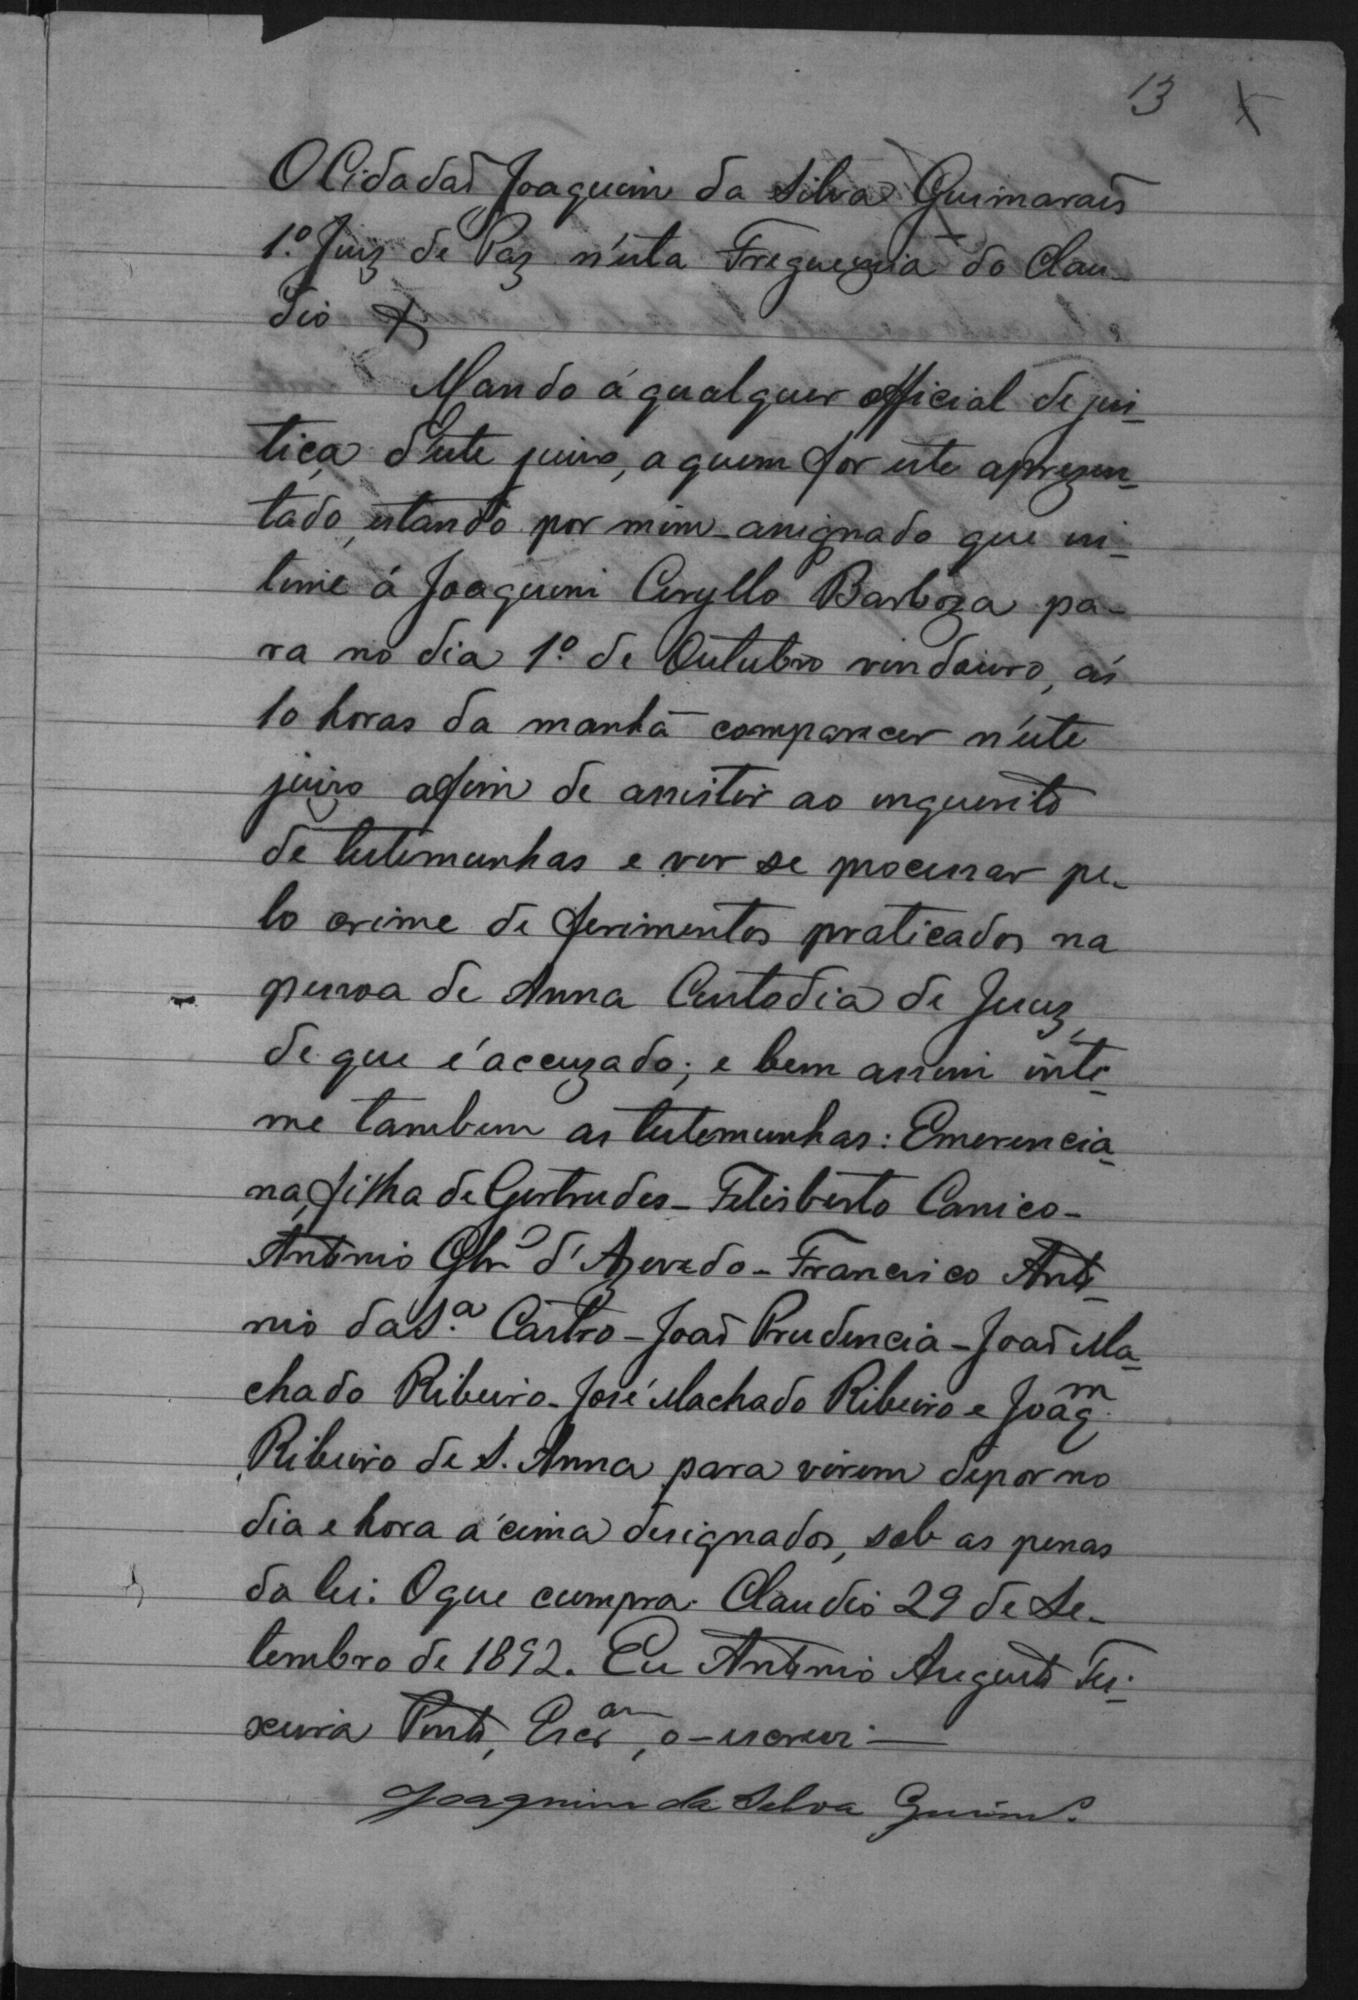 13
O Cidadaõ Joaquim da Silva Guimarais
1.º Juiz de Paz n'esta Freguezia do Clau-
dio
Mando á qualquer official de jus-
tiça d'este juizo, a quem for este aprezen-
tado, estando por mim assignado que in-
time á Joaquim Cyryllo Barboza pa-
ra no dia 1.º de Outubro vindouro, ás
10 horas da manhã comparecer n'este
juizo afim de assistir ao inquerito
de testimunhas e ver se processar pe-
lo crime de ferimentos praticados na
pessoa de Anna Custodia de Jesuz,
de que é accuzado; e bem assim inti-
me tambem as testemunhas: Emerencia-
na, filha de Gertrudes - Felisberto Canico -
Antonio d'Azevedo - Francisco Anto-
nio da S.ª Castro - Joaõ Prudencia - Joaõ Ma-
chado Ribeiro - José Machado Ribeiro e Joaq.m
Ribeiro de S. Anna para virem depor no
dia e hora a'cima designados, sob as penas
da lei. O que cumpra. Claudio 29 de Se-
tembro de 1892. Eu Antonio Augusto Tei-
xeira Pinto, Escr.am, o-escrevi. —
Joaquim da Silva Guim.es